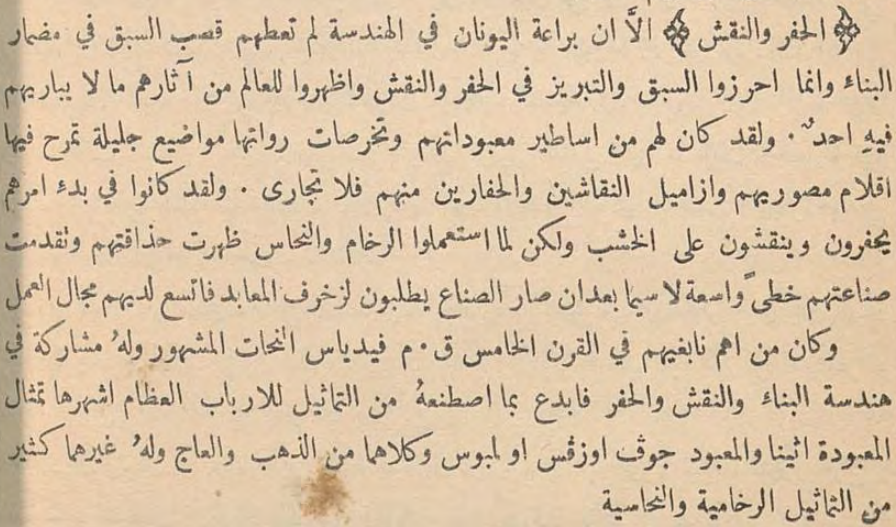 ﴿ الحفر والنقش ﴾ الَّا ان براعة اليونان في الهندسة لم تعطهم قصب السبق في مضمار
البناء وانما احرزوا السبق والتبريز في الحفر والنقش واظهروا للعالم من آثارهم ما لا يباريهم
فيهِ احدٌ. ولقد كان لهم من اساطير معبوداتهم وتخرصات رواتها مواضيع جليلة تمرح فيها
اقلام مصوريهم وازاميل النقاشين والحفارين منهم فلا تجارى . ولقد كانوا في بدء امرهم
يحفرون وينقشون على الخشب ولكن لما استعملوا الرخام والنحاس ظهرت حذاقتهم وتقدمت
صناعتهم خطىً واسعة لا سيما بعد ان صار الصناع يطلبون لزخرف المعابد فاتسع لديهم مجال العمل
وكان من اهم نابغيهم في القرن الخامس ق . م فيدياس النحات المشهور ولهُ مشاركة في
هندسة البناء والنقش والحفر فابدع بما اصطنعهُ من التماثيل للارباب العظام اشهرها تمثال
المعبودة اثينا والمعبود جوڤ اوزفس او لمبوس وكلاهما من الذهب والعاج ولهُ غيرهما كثير
من التماثيل الرخامية والنحاسية